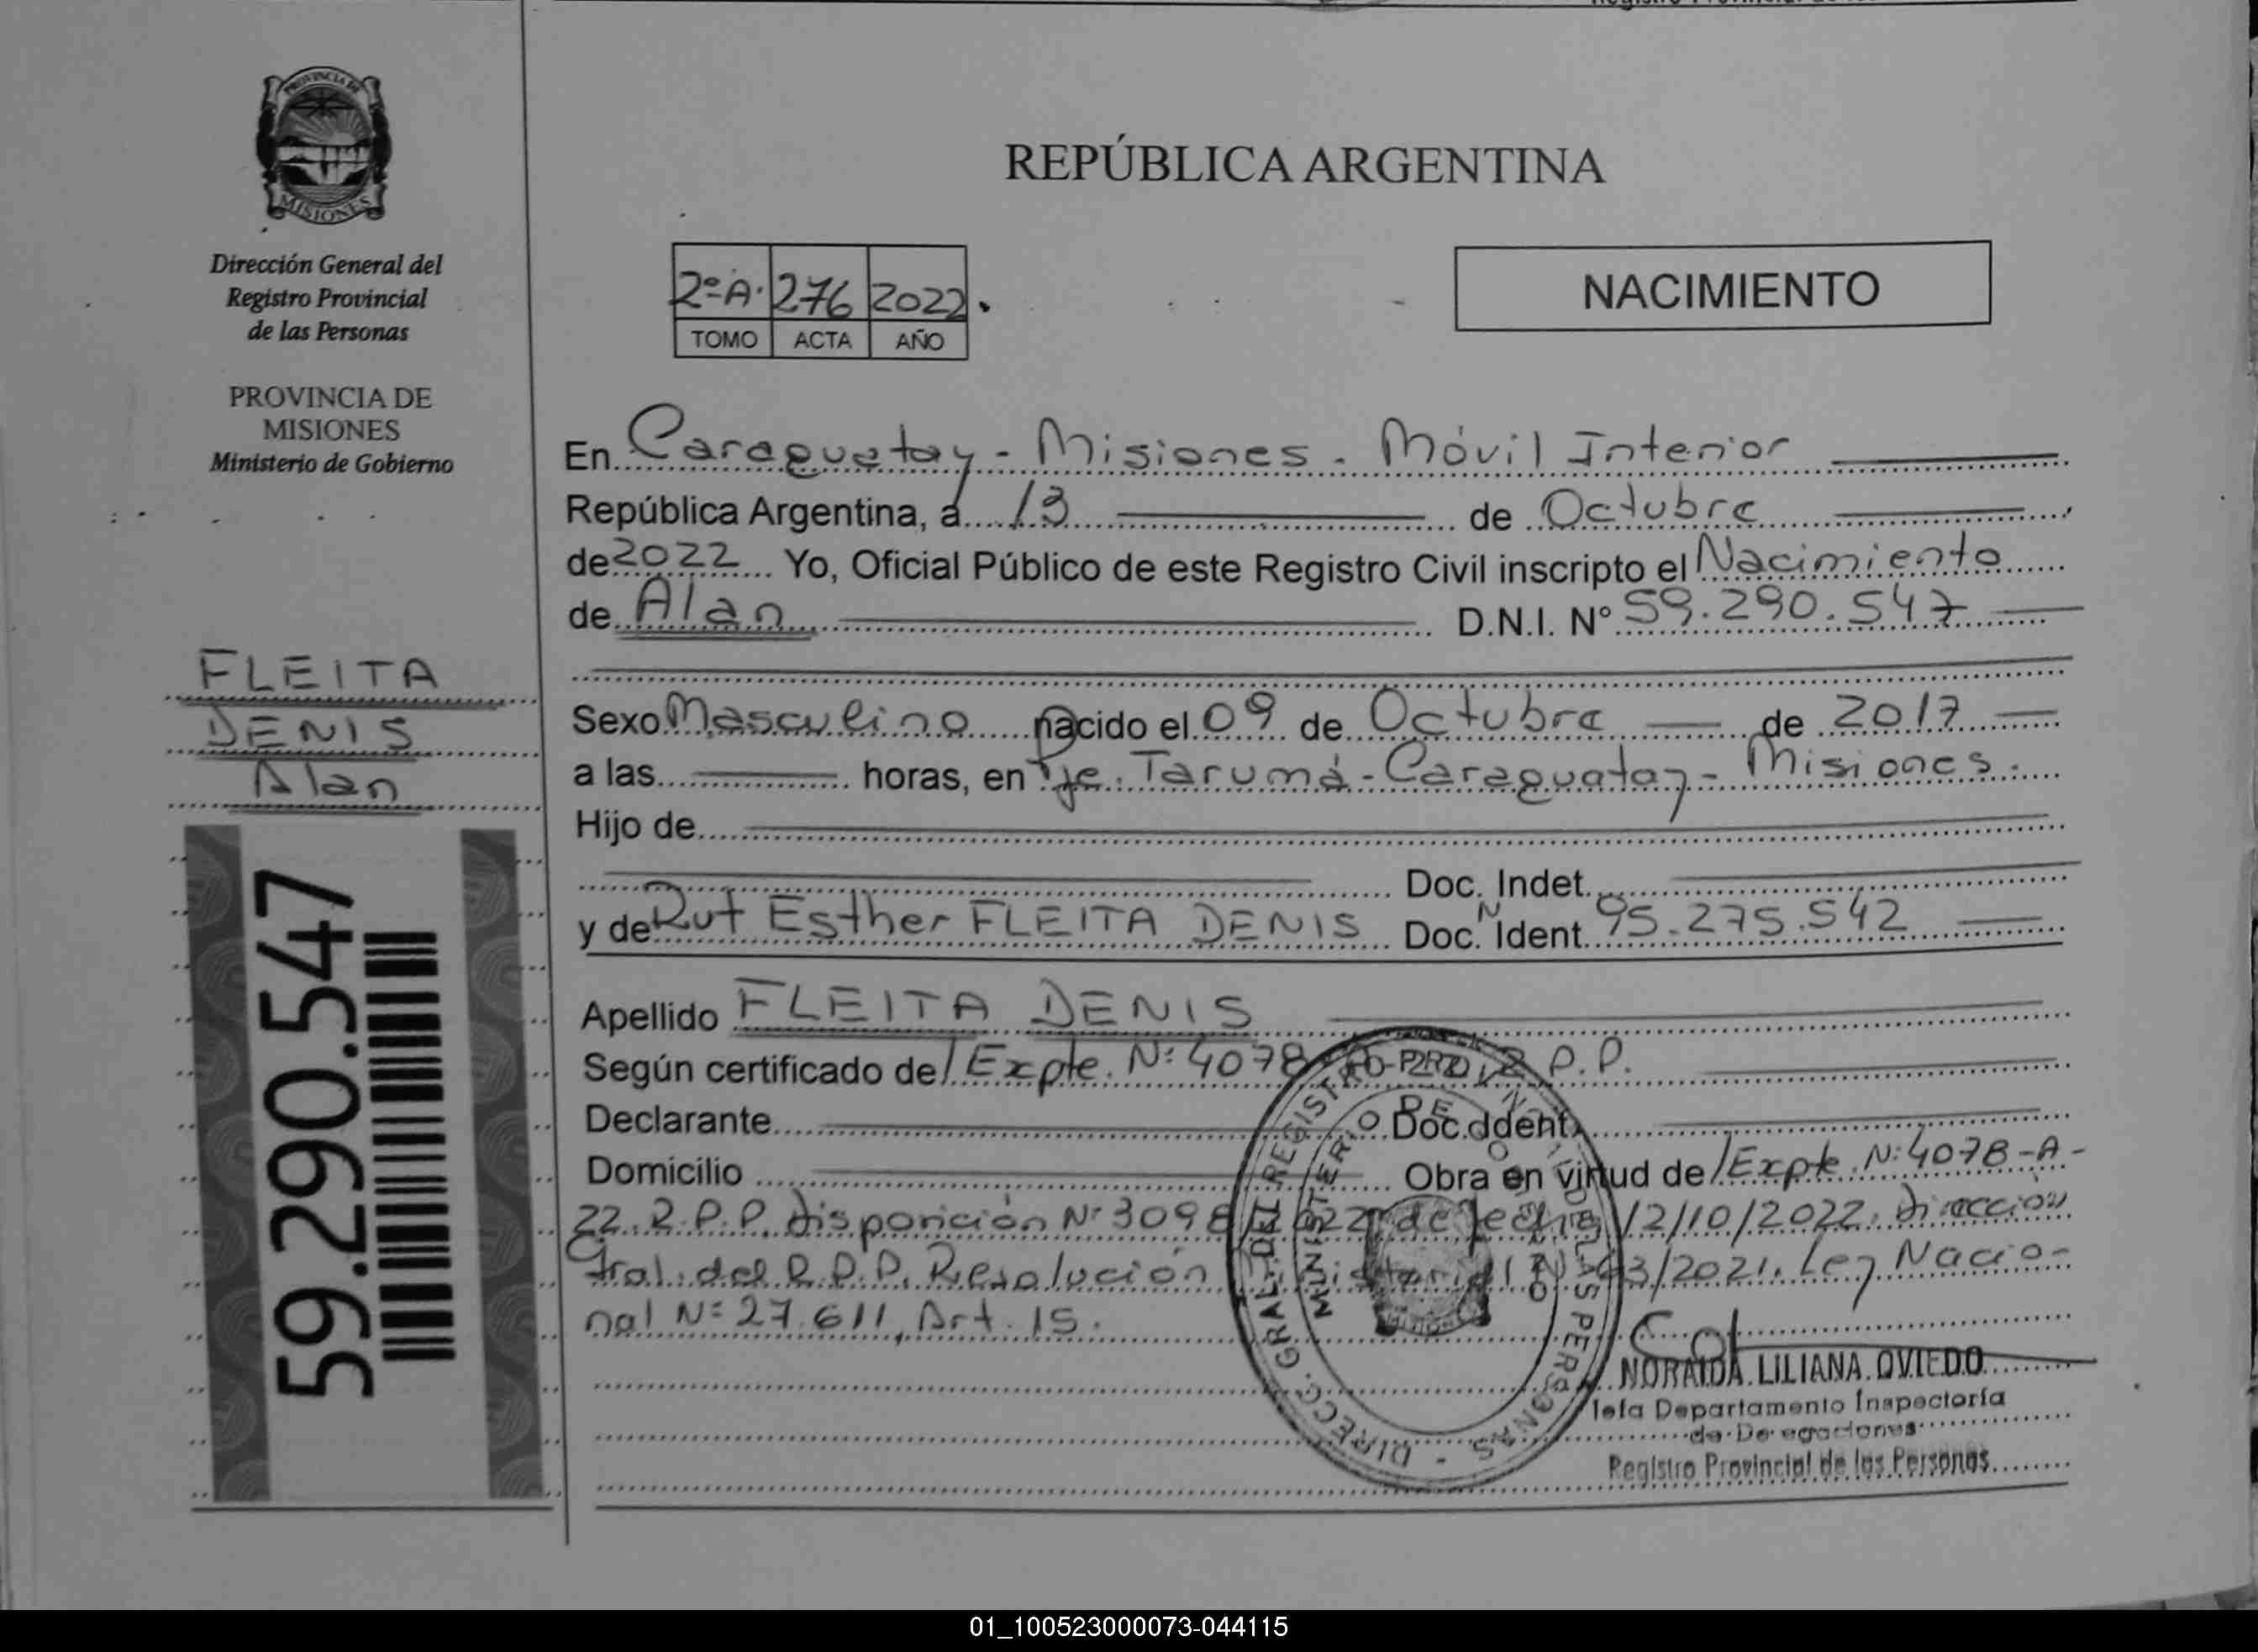 PROVINCIA DE
MISIONES
Dirección General del
Registro Provincial
de las Personas
PROVINCIA DE
MISIONES
Ministerio de Gobierno
FLEITA
DENIS
Alan
59.290.547
REPÚBLICA ARGENTINA
2º A. 276 2022.
TOMO ACTA AÑO
NACIMIENTO
En Caraguatay - Misiones - Móvil Interior
República Argentina, a 13 de Octubre
de 2022 Yo, Oficial Público de este Registro Civil inscripto el Nacimiento
de Alan D.N.I. Nº 59.290.547
Sexo Masculino nacido el 09 de Octubre de 2017
a las horas, en Pje. Tarumá - Caraguatay - Misiones.
Hijo de
Doc. Indet.
y de Rut Esther FLEITA DENIS Doc. Ident. Nº 95.275.542
Apellido FLEITA DENIS
Según certificado de Expte. Nº 4078 R.P.P.
Declarante Doc. Ident.
Domicilio Obra en virtud de Expte. Nº 4078-A-
22. R.P.P. Disposición Nº 3098 de fecha 12/10/2022. Dirección
Gral. del R.P.P. Resolución Ministerial Nº /2021. Ley Nacio-
nal Nº 27.611, Art. 15.
DIRECC. GRAL. DEL REGISTRO DE LAS PERSONAS
MINISTERIO DE GOBIERNO
NORAIDA LILIANA OVIEDO
Jefa Departamento Inspectoría
de Delegaciones
Registro Provincial de las Personas
01_100523000073-044115